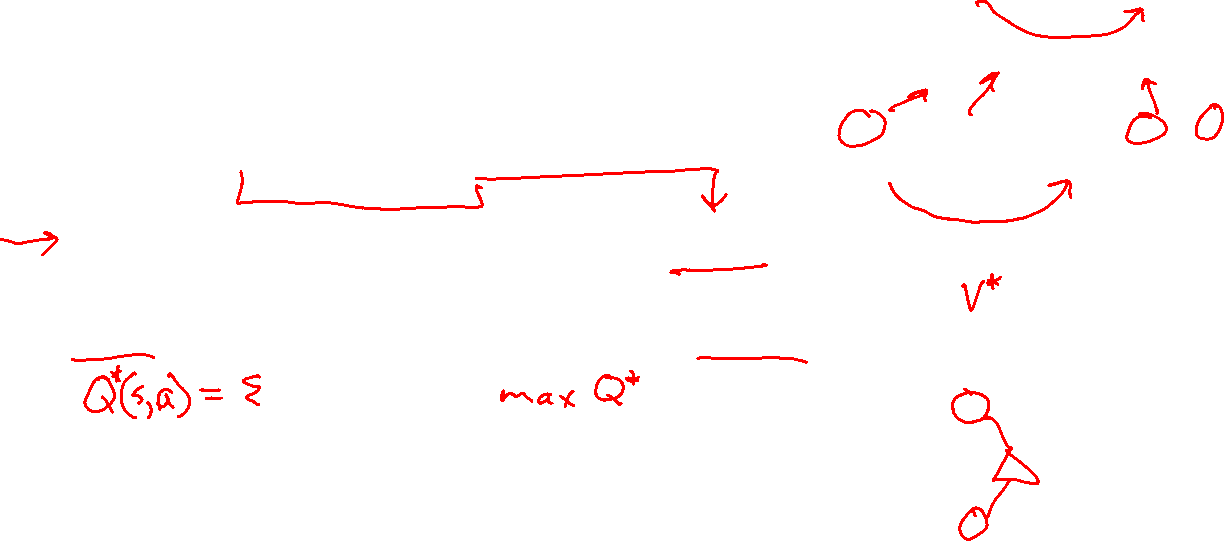 V*
Q*(s,a) = Σ
max Q*